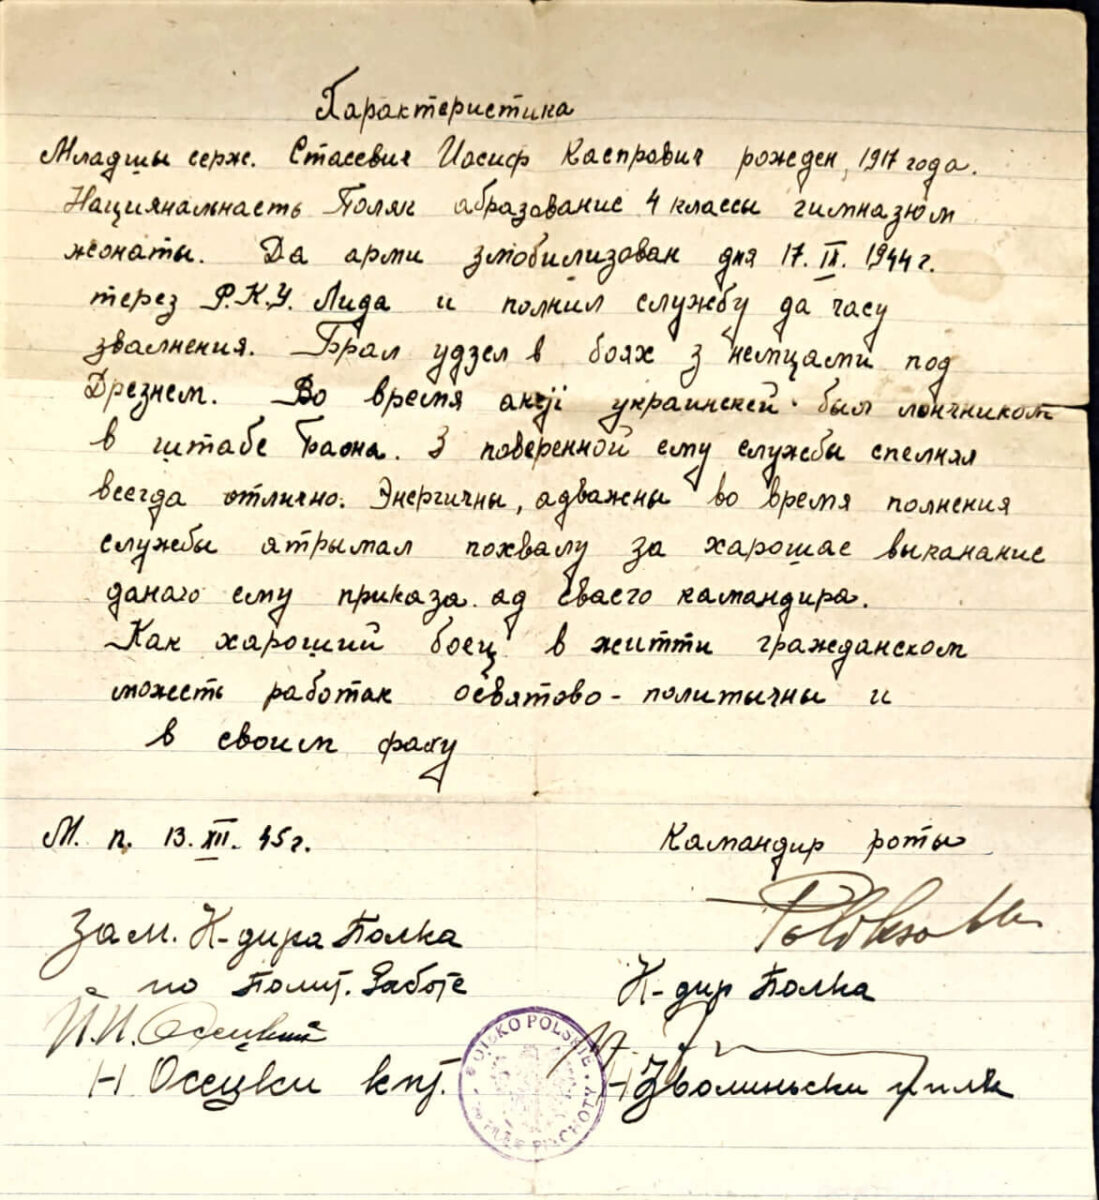 Характеристика
Младшы серж. Стасевич Иосиф Каспрович рожден, 1917 года.
Нацияналнасть Поляк абразование 4 классы гимназюм
жонаты. Да арми змобилизован дня 17. IX. 1944 г.
терез Р.К.У. Лида и полнил службу да часу
звалнения. Брал удзел в боях з немцами под
Дрезнем. Во время акcji украинскей был лончником
в штабе Баона. З поверенной ему службы спелнял
всегда отлично. Энергичны, адважены во время полнения
службы атрымал похвалу за харошае выканание
данаго ему приказа ад сваего камандира.
Как хароший боец в житти гражданском
можеть работак освятово-политычны и
в своим фаху
М. п. 13. XII. 45 г.
Камандир роты
Зам. К-дира Полка
по Полит. Работе
К-дир Полка
Н Осецки кпт.
Зволиньски
WOJSKO POLSKIE
PUŁK PIECHOTY